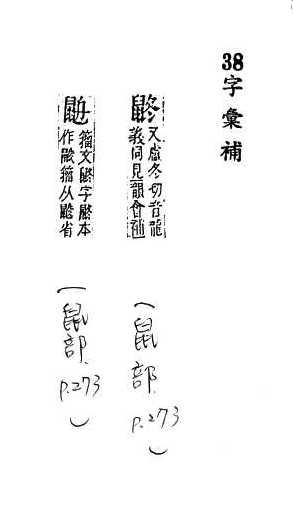 38字彙補
鼨
又盧冬切音龍
義同見韻會補
（鼠部.
P.273）
籀文鼨字鼨本
作䶈籀从䶈省
（鼠部.
P.273）